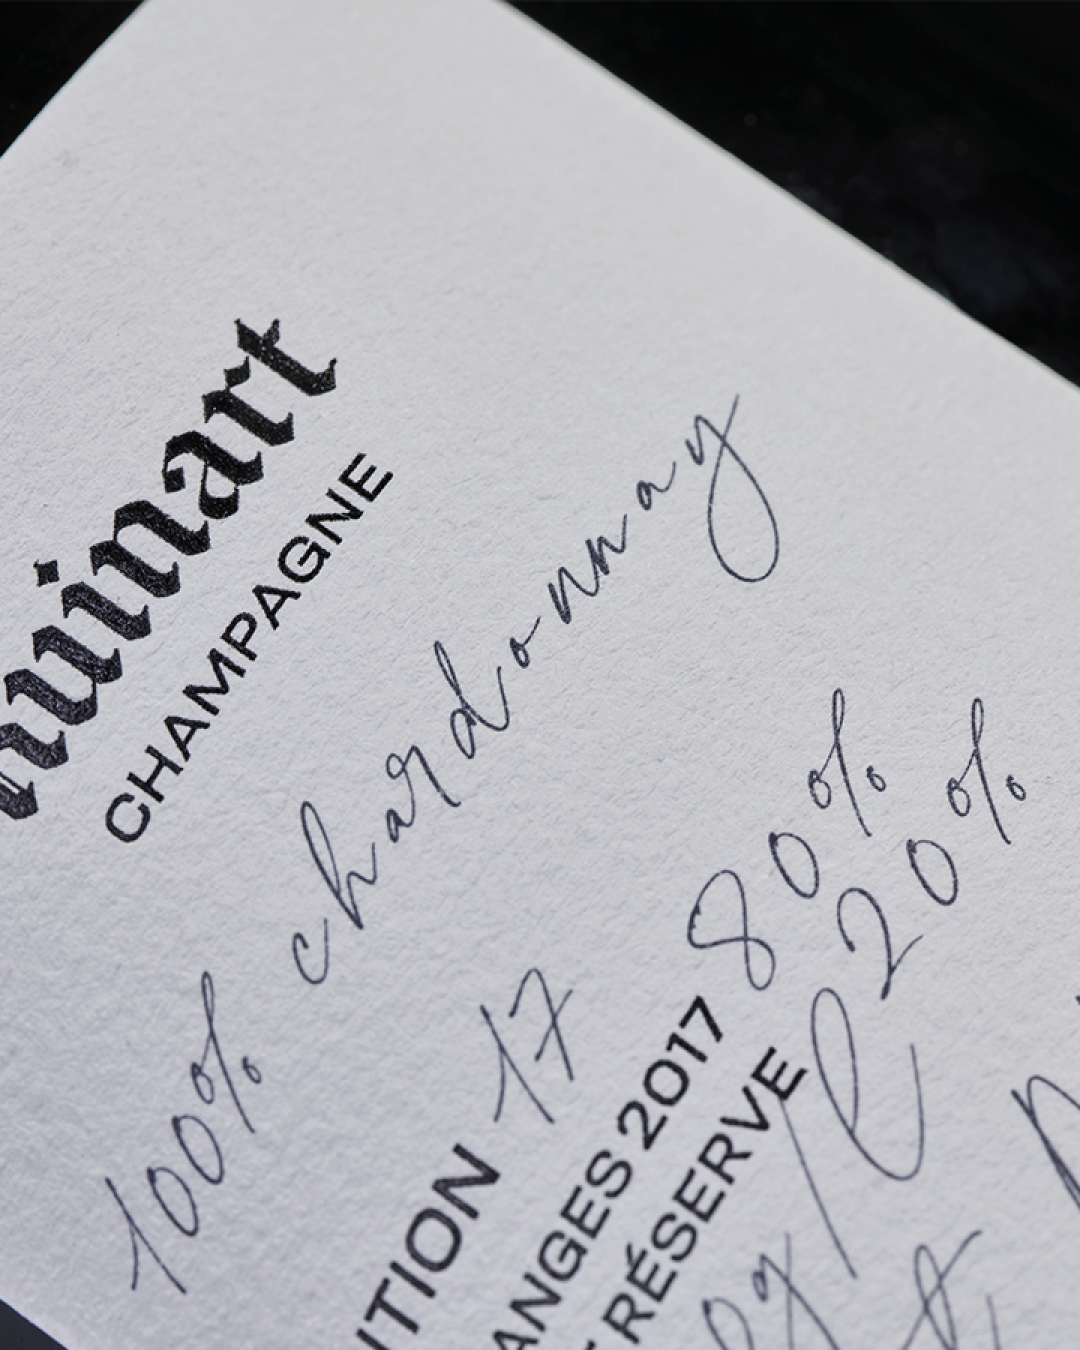 uinart
CHAMPAGNE
100% chardonnay
ITION 17
ANGES 2017 80%
RÉSERVE 20%
0g/l